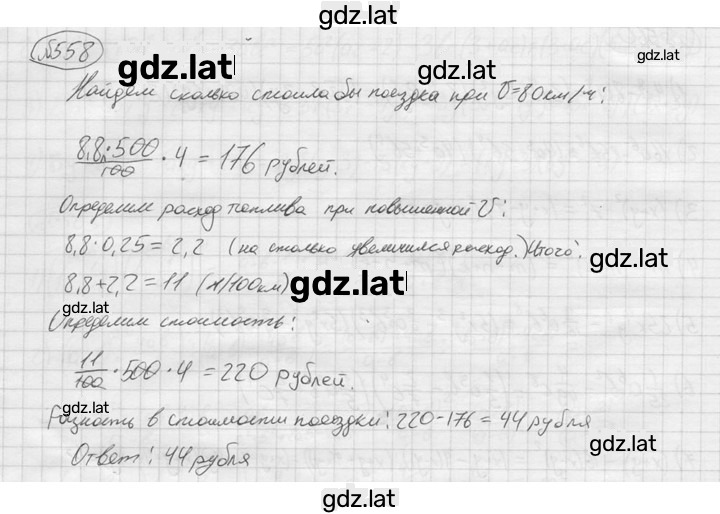 gdz.lat
№558
gdz.lat
gdz.lat
gdz.lat
Найдем сколько стоила бы поездка при v=80км/ч:
8,8·500/100 · 4 = 176 рублей.
Определим расход топлива при повышенной v:
8,8·0,25 = 2,2 (на столько увеличился расход.) Итого:
gdz.lat
8,8+2,2 = 11 (л/100км)
gdz.lat
gdz.lat
Определим стоимость:
11/100 · 500 · 4 = 220 рублей.
gdz.lat
Разность в стоимости поездки: 220-176 = 44 рубля
gdz.lat
Ответ: 44 рубля
gdz.lat